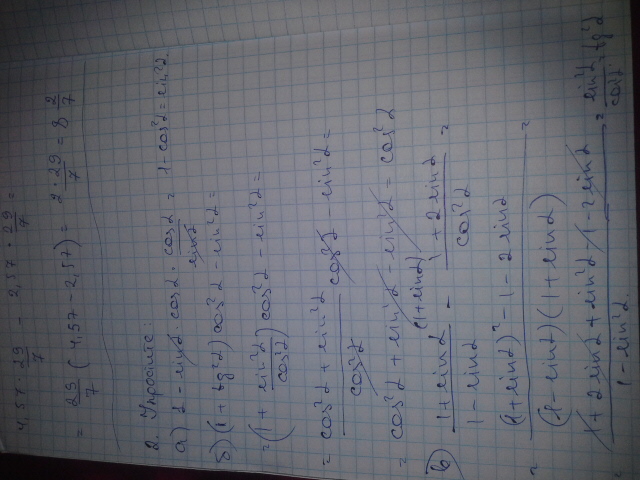 4,57 · 29/7 − 2,57 · 29/7 =
= 29/7 (4,57 − 2,57) = 2·29/7 = 8 2/7
2. Упростите:
а) 1 − sinα · cosα · cosα/sinα = 1 − cos²α = sin²α.
б) (1 + tg²α) cos²α − sin²α =
= (1 + sin²α/cos²α) cos²α − sin²α =
= cos²α + sin²α/cos²α cos²α − sin²α =
= cos²α + sin²α − sin²α = cos²α
в) 1 + sinα/1 − sinα (1+sinα) − 1 + 2sinα/cos²α =
= (1+sinα)² − 1 − 2sinα/(1−sinα)(1+sinα) =
1 + 2sinα + sin²α − 1 − 2sinα/1 − sin²α = sin²α/cos²α tg²α